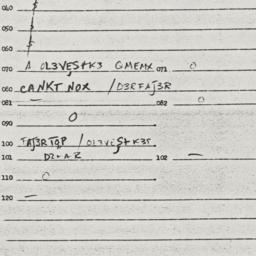 040
050
060
070 A OL3VES+K3 GMEMX 071 O
080 CANKT NOX /D3RFAJ3R
081 — 082 O
090 O
100 TAJ3RTQP / OL3VES+K3T
101 DR+AR 102 —
110 O
120 —